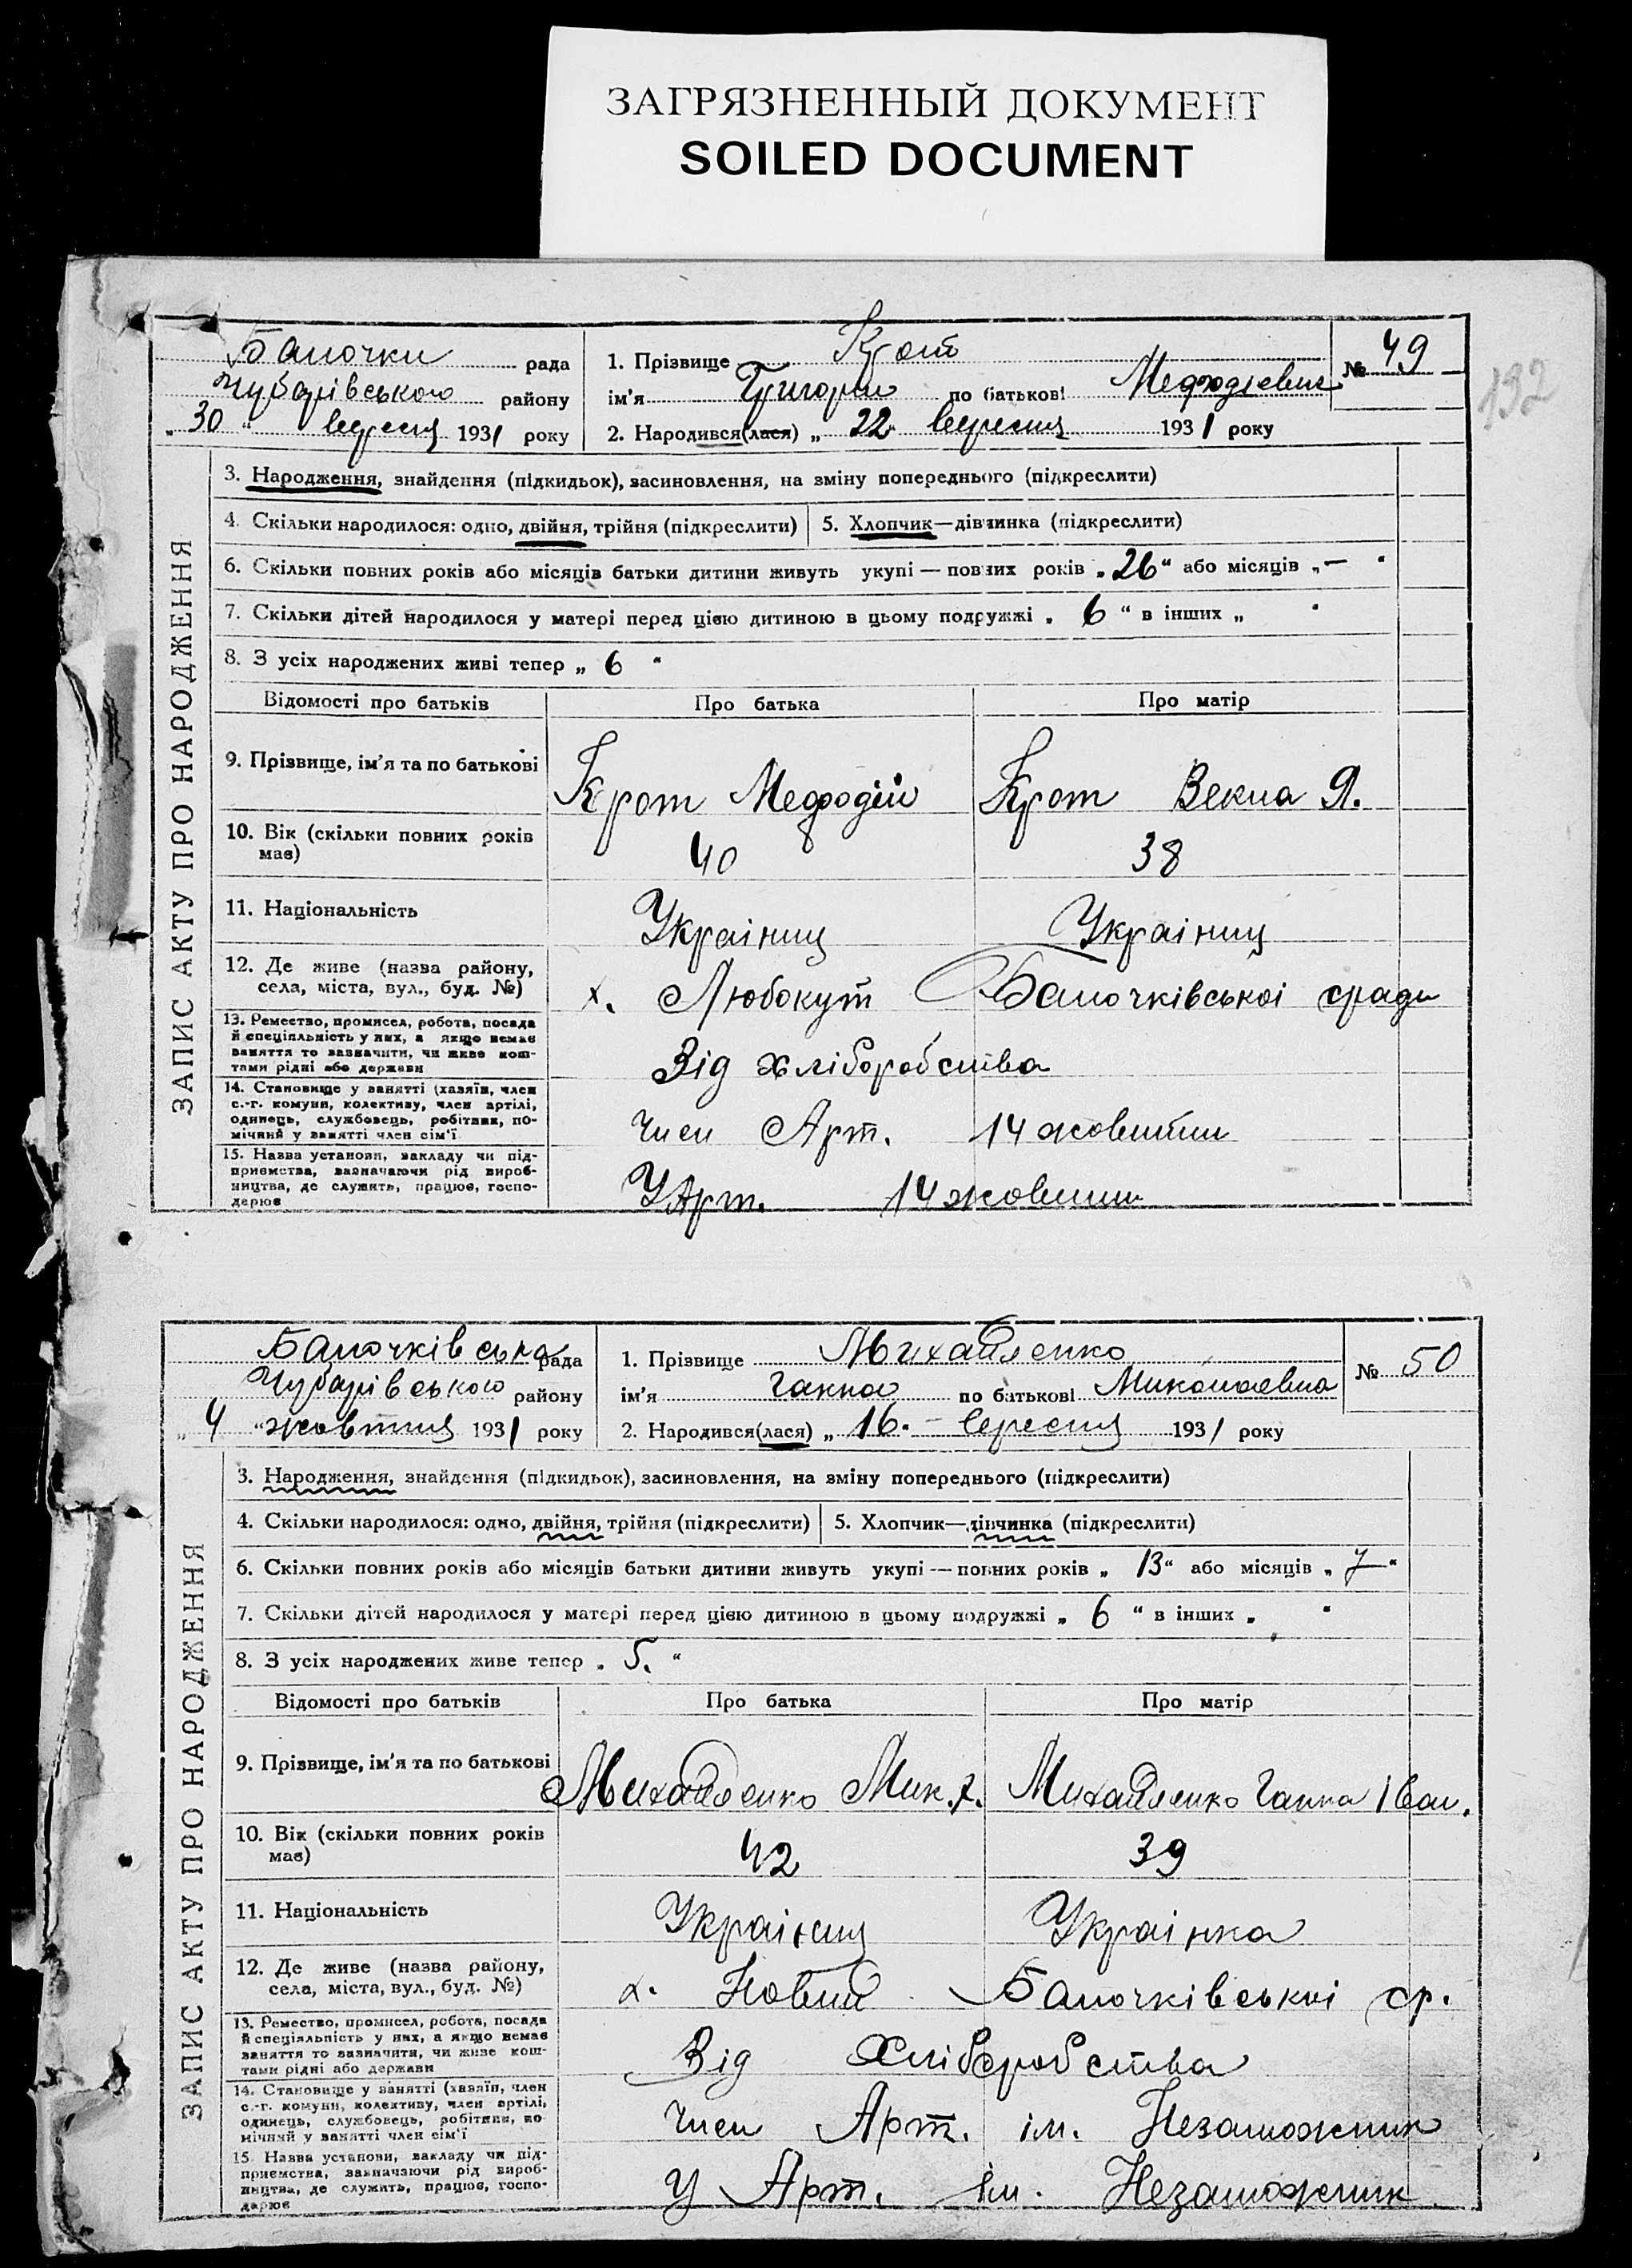 ЗАГРЯЗНЕННЫЙ ДОКУМЕНТ
SOILED DOCUMENT
192
Балочки рада
Чубарівського району
„ 30 " вересня 1931 року
1. Прізвище Крот
ім'я Григорій по батькові Мефодієвич
2. Народився(лася) „ 22 вересня 1931 року
№ 49
ЗАПИС АКТУ ПРО НАРОДЖЕННЯ
3. Народження, знайдення (підкидьок), засиновлення, на зміну попереднього (підкреслити)
4. Скільки народилося: одно, двійня, трійня (підкреслити) 5. Хлопчик—дівчинка (підкреслити)
6. Скільки повних років або місяців батьки дитини живуть укупі — повних років „ 26 “ або місяців „ — “
7. Скільки дітей народилося у матері перед цією дитиною в цьому подружжі „ 6 “ в інших „ “
8. З усіх народжених живі тепер „ 6 “
Відомості про батьків Про батька Про матір
9. Прізвище, ім'я та по батькові Крот Мефодій Крот Векла Я.
10. Вік (скільки повних років
має) 40 38
11. Національність Українц Українц
12. Де живе (назва району,
села, міста, вул., буд. №) х. Любокут Балочківської сради
13. Ремество, промисел, робота, посада
й спеціяльність у них, а якщо немає
заняття то зазначити, чи живе кош-
тами рідні або держави
Від хліборобства
14. Становище у занятті (хазяїн, член
с.-г. комуни, колективу, член артілі,
одинець, службовець, робітник, по-
мічний у занятті член сім'ї
Член Арт. 14 жовтня
15. Назва установи, закладу чи під-
приємства, зазначаючи рід вироб-
ництва, де служить, працює, госпо-
дарює
У Арт. 14 жовтня
Балочківська рада
Чубарівського району
„ 4 “ жовтня 1931 року
1. Прізвище Михайленко
ім'я Ганна по батькові Миколаевна
2. Народився(лася) „ 16. - вересня 1931 року
№ 50
ЗАПИС АКТУ ПРО НАРОДЖЕННЯ
3. Народження, знайдення (підкидьок), засиновлення, на зміну попереднього (підкреслити)
4. Скільки народилося: одно, двійня, трійня (підкреслити) 5. Хлопчик—дівчинка (підкреслити)
6. Скільки повних років або місяців батьки дитини живуть укупі — повних років „ 13 “ або місяців „ 7 “
7. Скільки дітей народилося у матері перед цією дитиною в цьому подружжі „ 6 “ в інших „ “
8. З усіх народжених живе тепер „ 5. “
Відомості про батьків Про батька Про матір
9. Прізвище, ім'я та по батькові Михайленко Мик. Михайленко Ганна Іван.
10. Вік (скільки повних років
має) 42 39
11. Національність Українц Українка
12. Де живе (назва району,
села, міста, вул., буд. №) х. Новий Балочківської ср.
13. Ремество, промисел, робота, посада
й спеціяльність у них, а якщо немає
заняття то зазначити, чи живе кош-
тами рідні або держави
Від Хліборобства
14. Становище у занятті (хазяїн, член
с.-г. комуни, колективу, член артілі,
одинець, службовець, робітник, по-
мічний у занятті член сім'ї
Член Арт. ім. Незаможник
15. Назва установи, закладу чи під-
приємства, зазначаючи рід вироб-
ництва, де служить, працює, госпо-
дарює
У Арт. ім. Незаможник